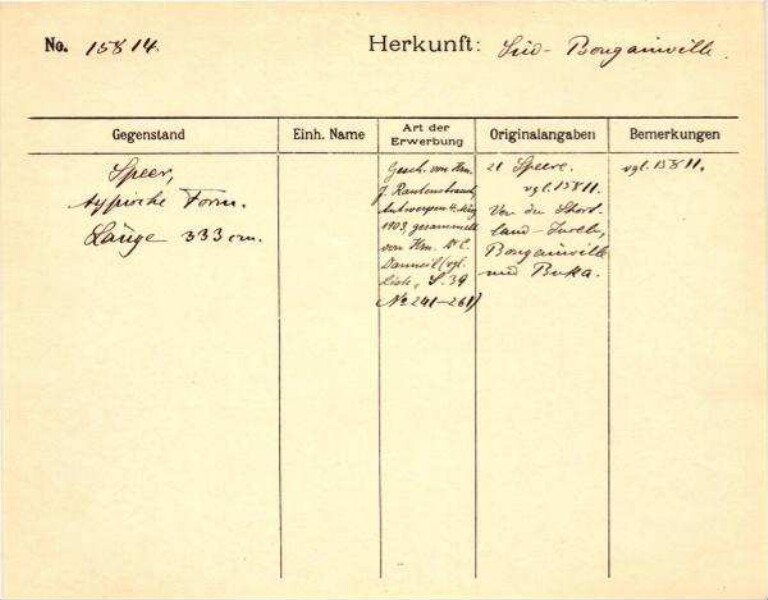 No. 15814.
Herkunft: Süd-Bougainville.
Gegenstand
Einh. Name
Art der Erwerbung
Originalangaben
Bemerkungen
Speer,
typische Form.
Länge 333 cm.
Gesch. von Hrn.
J. Rautenstrauch,
Antwerpen 4. Aug.
1903, gesammelt
von Hrn. Dr. C.
Danneil (vgl.
Liste, S. 39
No 241–261)
21 Speere.
vgl. 15811.
Von den Short-
land-Inseln,
Bougainville
und Buka.
vgl. 15811.